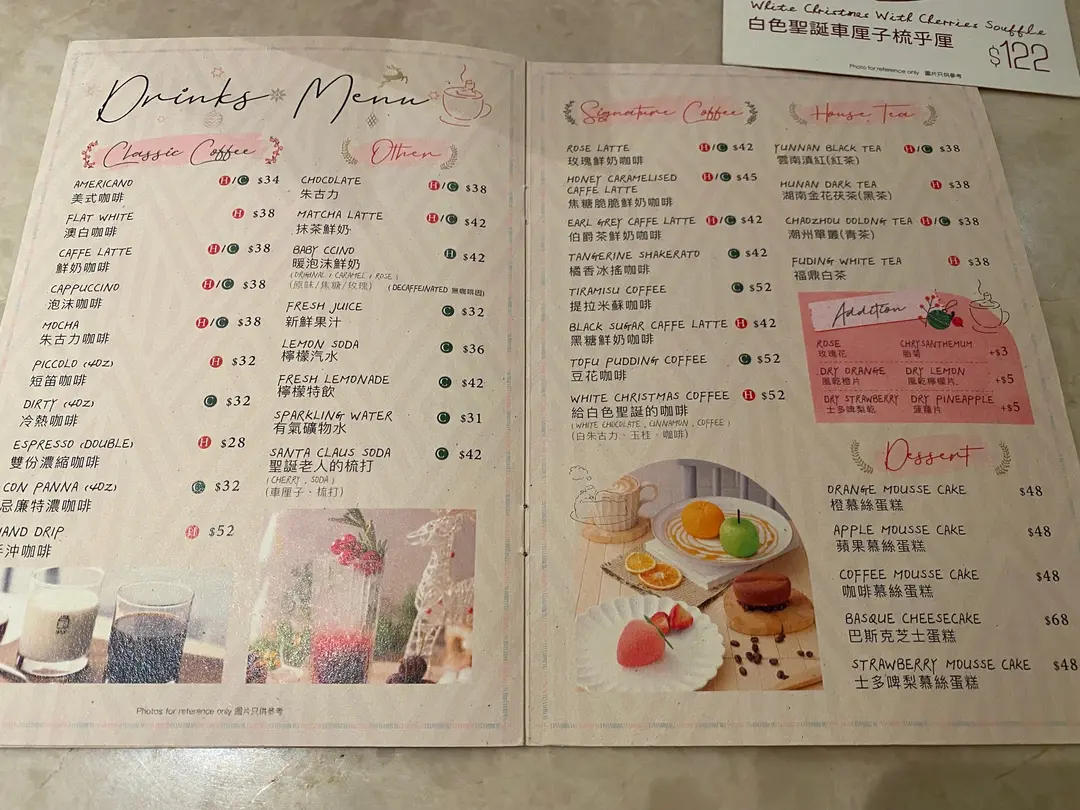 White Christmas With Cherries Souffle
白色聖誕車厘子梳乎厘
$122
Photo for reference only 圖片只供參考
Drinks Menu
Classic Coffee
AMERICANO H/C $34
美式咖啡
FLAT WHITE H $38
澳白咖啡
CAFFE LATTE H/C $38
鮮奶咖啡
CAPPUCCINO H/C $38
泡沫咖啡
MOCHA H/C $38
朱古力咖啡
PICCOLO (4OZ) H $32
短笛咖啡
DIRTY (4OZ) C $32
冷熱咖啡
ESPRESSO (DOUBLE) H $28
雙份濃縮咖啡
CON PANNA (4OZ) C $32
忌廉特濃咖啡
HAND DRIP H $52
手沖咖啡
Other
CHOCOLATE H/C $38
朱古力
MATCHA LATTE H/C $42
抹茶鮮奶
BABY CCINO H $42
暖泡沫鮮奶
(ORIGINAL / CARAMEL / ROSE)
(原味/焦糖/玫瑰) (DECAFFEINATED 無咖啡因)
FRESH JUICE C $32
新鮮果汁
LEMON SODA C $36
檸檬汽水
FRESH LEMONADE C $42
檸檬特飲
SPARKLING WATER C $31
有氣礦物水
SANTA CLAUS SODA C $42
聖誕老人的梳打
(CHERRY, SODA)
(車厘子、梳打)
Photos for reference only 圖片只供參考
Signature Coffee
ROSE LATTE H/C $42
玫瑰鮮奶咖啡
HONEY CARAMELISED
CAFFE LATTE H/C $45
焦糖脆脆鮮奶咖啡
EARL GREY CAFFE LATTE H/C $42
伯爵茶鮮奶咖啡
TANGERINE SHAKERATO C $42
橘香冰搖咖啡
TIRAMISU COFFEE C $52
提拉米蘇咖啡
BLACK SUGAR CAFFE LATTE H $42
黑糖鮮奶咖啡
TOFU PUDDING COFFEE C $52
豆花咖啡
WHITE CHRISTMAS COFFEE H $52
給白色聖誕的咖啡
(WHITE CHOCOLATE, CINNAMON, COFFEE)
(白朱古力、玉桂、咖啡)
House Tea
YUNNAN BLACK TEA H/C $38
雲南滇紅(紅茶)
HUNAN DARK TEA H $38
湖南金花茯茶(黑茶)
CHAOZHOU OOLONG TEA H/C $38
潮州單叢(青茶)
FUDING WHITE TEA H $38
福鼎白茶
Addition
ROSE CHRYSANTHEMUM +$3
玫瑰花 胎菊
DRY ORANGE DRY LEMON +$5
風乾橙片 風乾檸檬片
DRY STRAWBERRY DRY PINEAPPLE +$5
士多啤梨乾 菠蘿片
Dessert
ORANGE MOUSSE CAKE $48
橙慕絲蛋糕
APPLE MOUSSE CAKE $48
蘋果慕絲蛋糕
COFFEE MOUSSE CAKE $48
咖啡慕絲蛋糕
BASQUE CHEESECAKE $68
巴斯克芝士蛋糕
STRAWBERRY MOUSSE CAKE $48
士多啤梨慕絲蛋糕